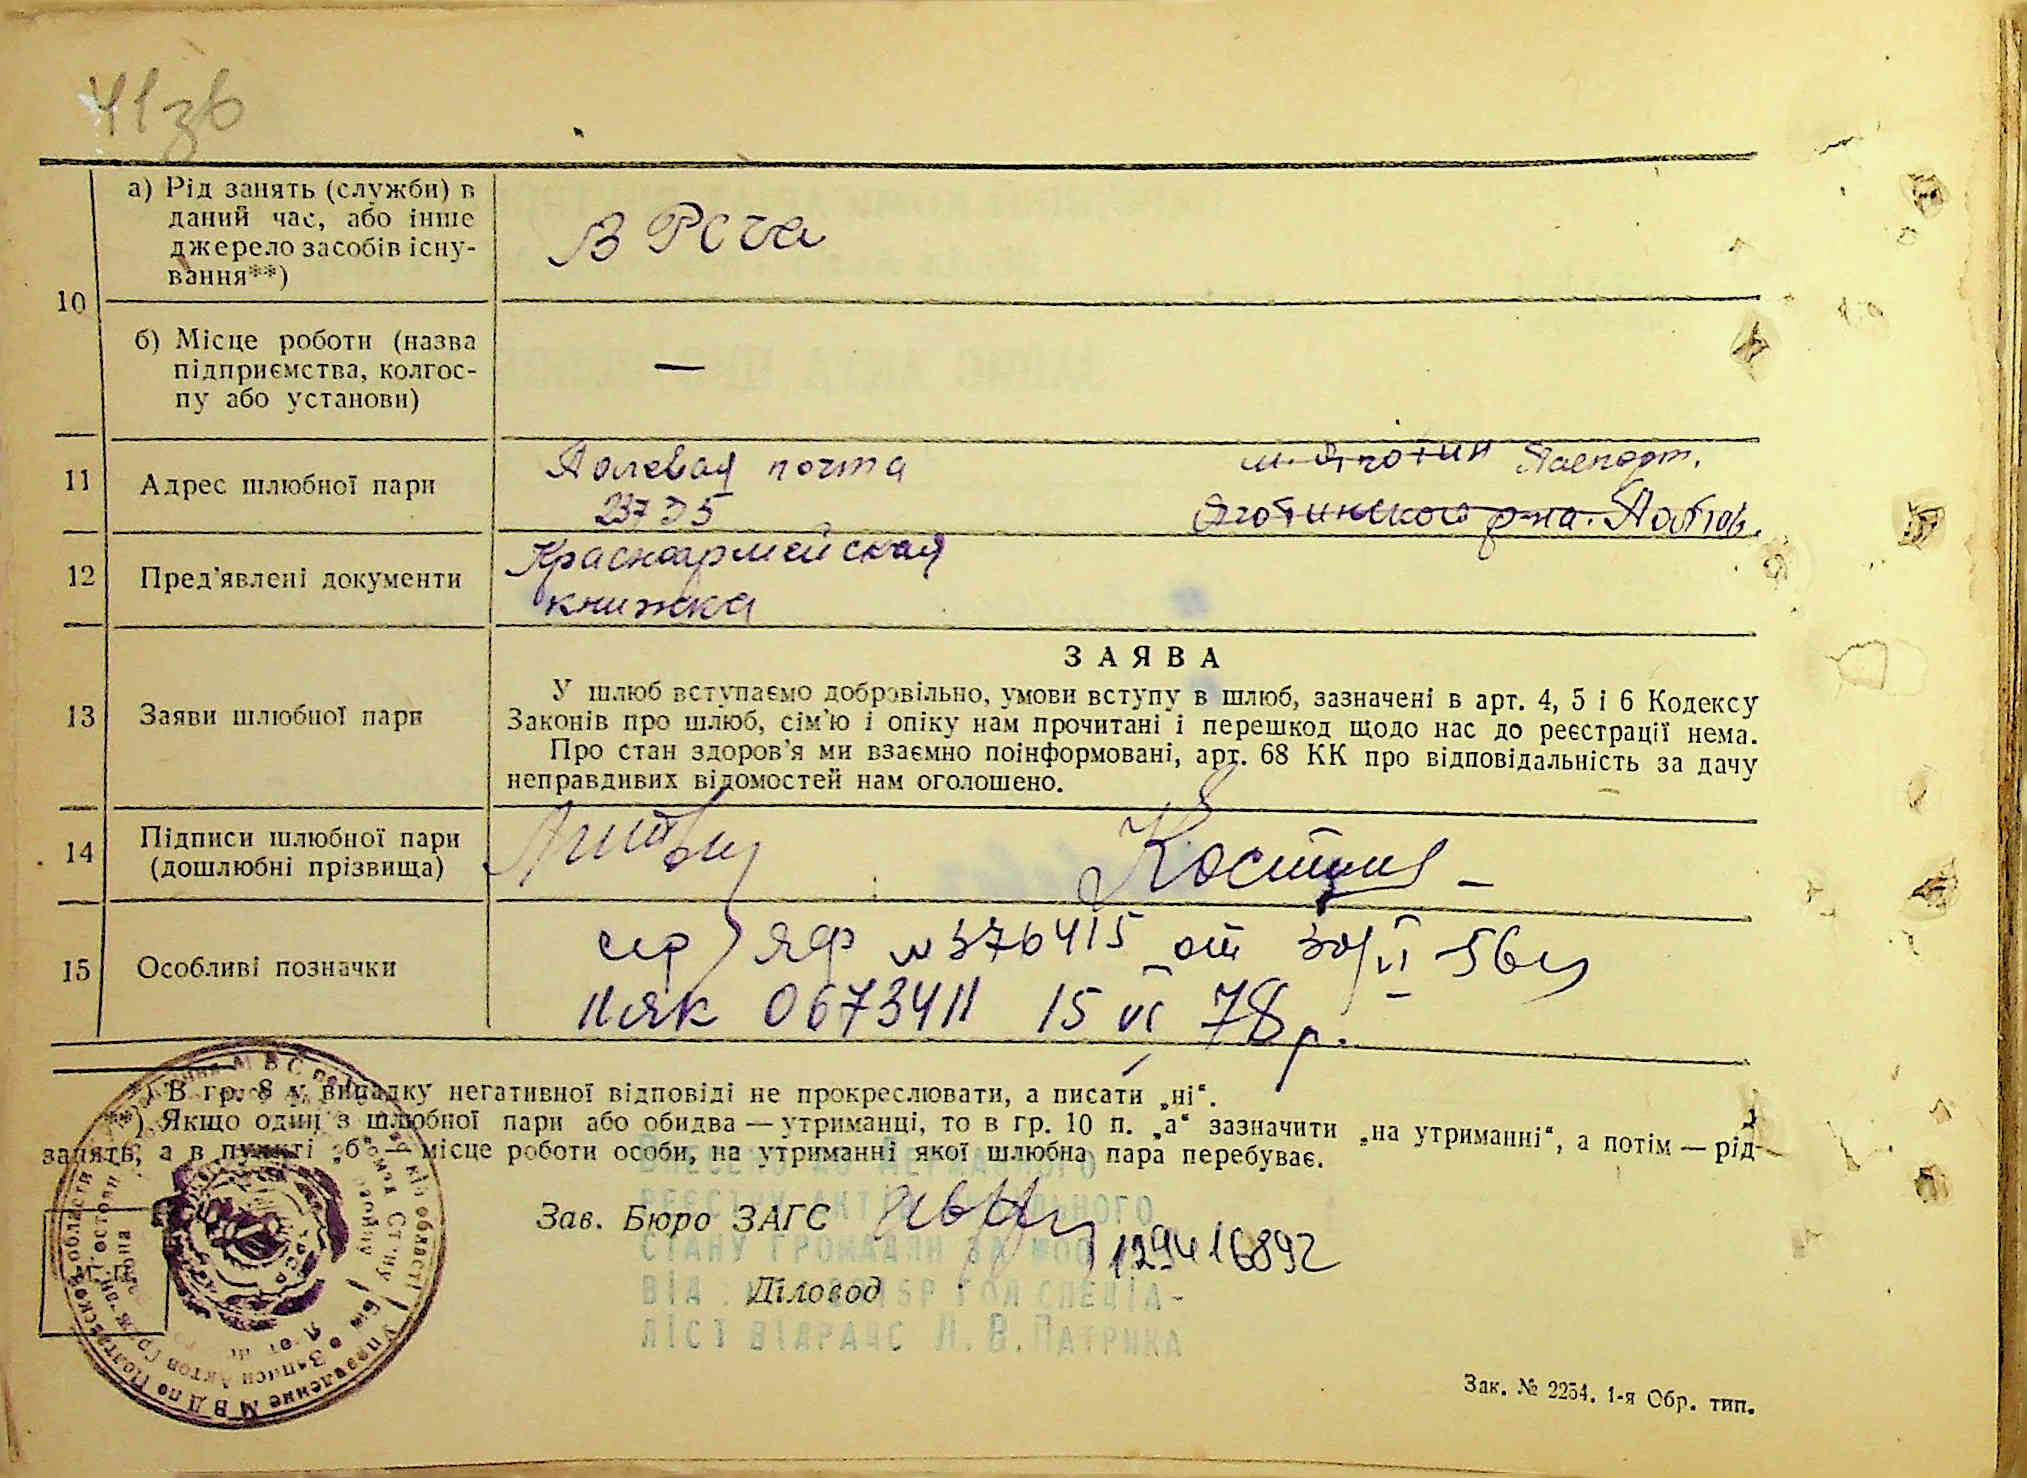 41зв
а) Рід занять (служби) в
даний час, або інше
джерело засобів існу-
вання**)
В
10
б) Місце роботи (назва
підприємства, колгос-
пу або установи)
—
11
Адрес шлюбної пари
Полевая почта
м. Яготин Паспорт.
Яготинского р-на. Полтав.
12
Пред'явлені документи
Красноармейская
книжка
13
Заяви шлюбної пари
ЗАЯВА
У шлюб вступаємо добровільно, умови вступу в шлюб, зазначені в арт. 4, 5 і 6 Кодексу
Законів про шлюб, сім'ю і опіку нам прочитані і перешкод щодо нас до реєстрації нема.
Про стан здоров'я ми взаємно поінформовані, арт. 68 КК про відповідальність за дачу
неправдивих відомостей нам оголошено.
14
Підписи шлюбної пари
(дошлюбні прізвища)
15
Особливі позначки
ЯФ № 376415 от 30/VI 56
ЯК 0673411 15 VI 78р.
*) В гр. 8 у випадку негативної відповіді не прокреслювати, а писати „ні“.
**) Якщо один з шлюбної пари або обидва — утриманці, то в гр. 10 п. „а“ зазначити „на утриманні“, а потім — рід
занять, а в пункті „б“ — місце роботи особи, на утриманні якої шлюбна пара перебуває.
Зав. Бюро ЗАГС
129416892
Діловод
РЕЄСТРУ АКТІВ ЦИВІЛЬНОГО
СТАНУ ГРОМАДЯН ЗА №00
ВІД СПЕЦІА-
ЛІСТ ВІДРАЦС Л. В. ПАТРИКА
М. П.
Управление МВД по Полтавской области
Зак. № 2254. 1-я Обр. тип.